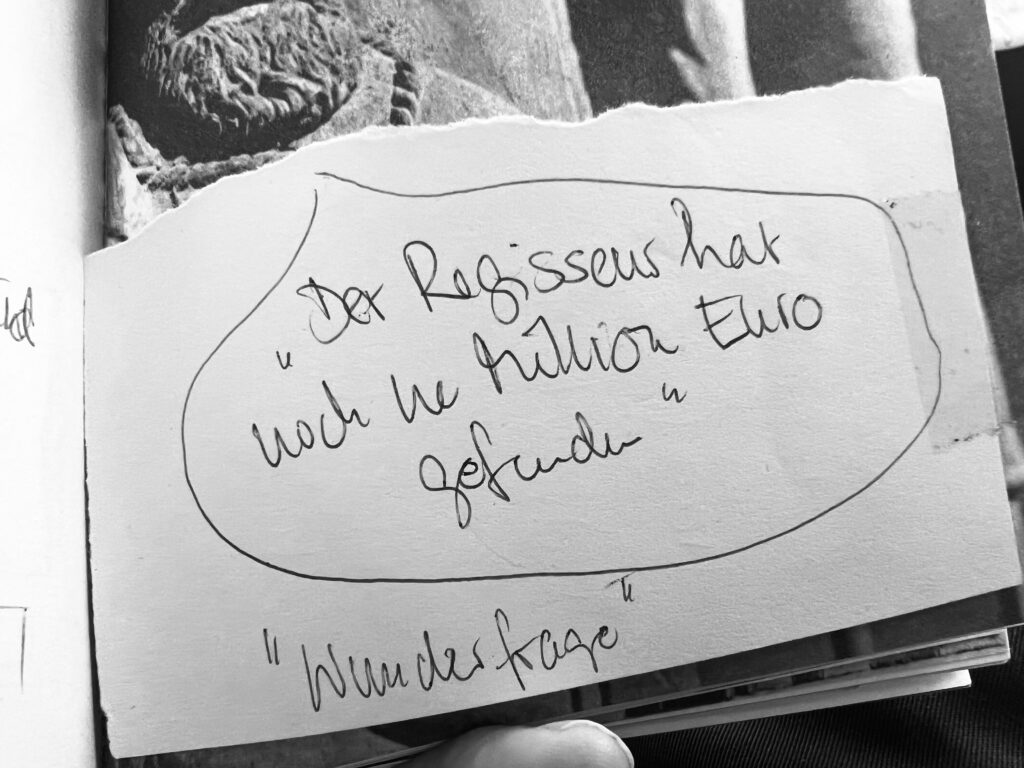 "Der Regisseur hat
noch ne Million Euro
gefunden"
"Wunderfrage"